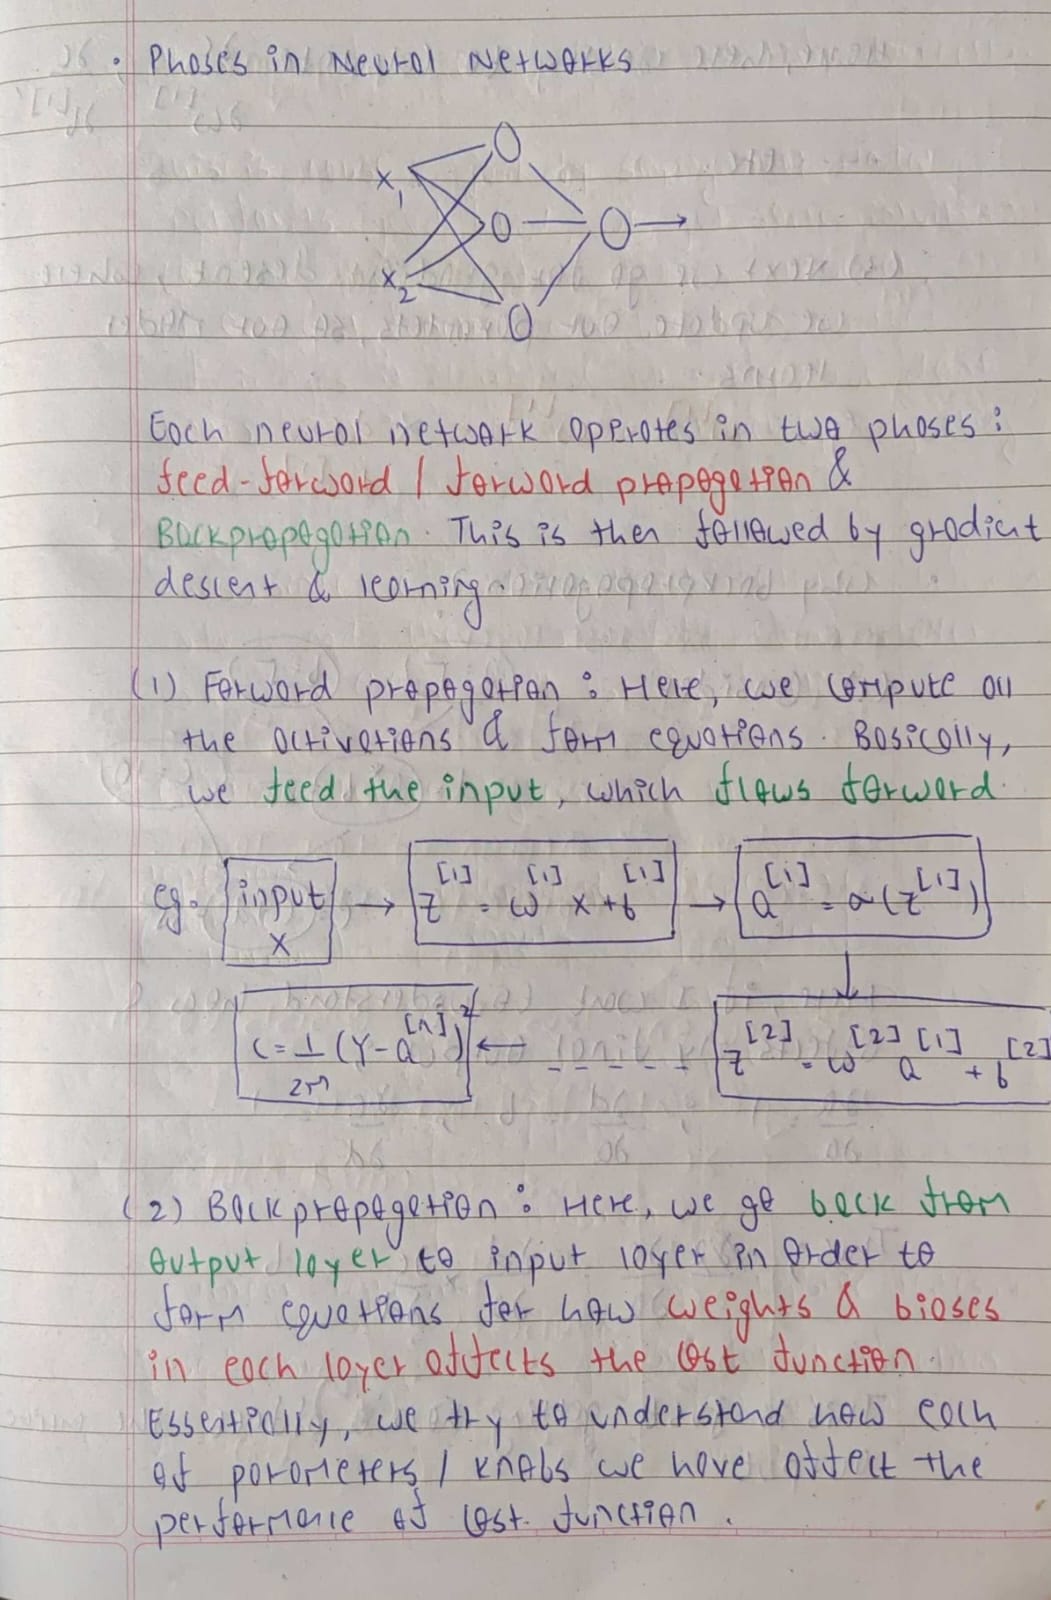 • Phases in Neural Networks
x₁
x₂
Each neural network operates in two phases :
feed-forward / forward propagation &
Backpropagation. This is then followed by gradient
descent & learning.
(1) Forward propagation : Here, we compute all
the activations & form equations. Basically,
we feed the input, which flows forward.
eg. input x → z^[1] = w^[1] x + b^[1] → a^[1] = σ(z^[1])
c = 1/2m (Y - a^[n])² ← - - - - - z^[2] = w^[2] a^[1] + b^[2]
(2) Backpropagation : Here, we go back from
output layer to input layer in order to
form equations for how weights & biases
in each layer affects the cost function.
Essentially, we try to understand how each
of parameters / knobs we have affect the
performance of cost function.